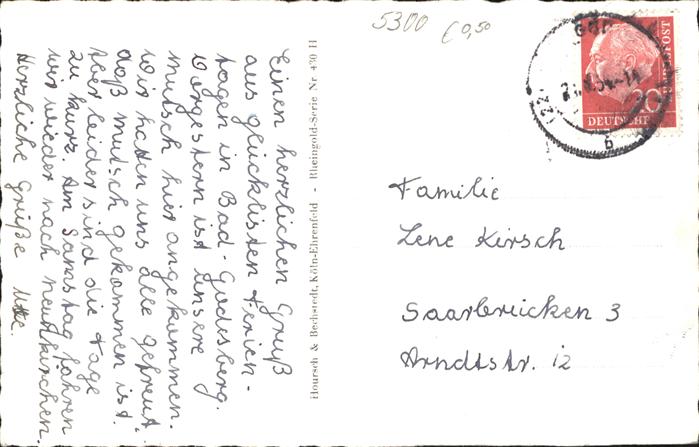 5300 € 0,50
Einen herzlichen Gruß
aus glücklisten Ferien-
tagen in Bad-Godesberg.
Vorgestern ist unsere
mutsch hier angekommen.
Wir hatten uns alle gefreut
daß mutsch gekommen ist.
Aber leider sind die Tage
zu kurz. Am Samstag fahren
wir wieder nach neunkirchen.
Herzliche Grüße Ute.
Hoursch & Bechstedt, Köln-Ehrenfeld - Rheingold-Serie Nr. 430 H
BUNDESPOST
20
DEUTSCHE
(22
b
Familie
Lene Kirsch
Saarbrücken 3
Arndtstr. 12